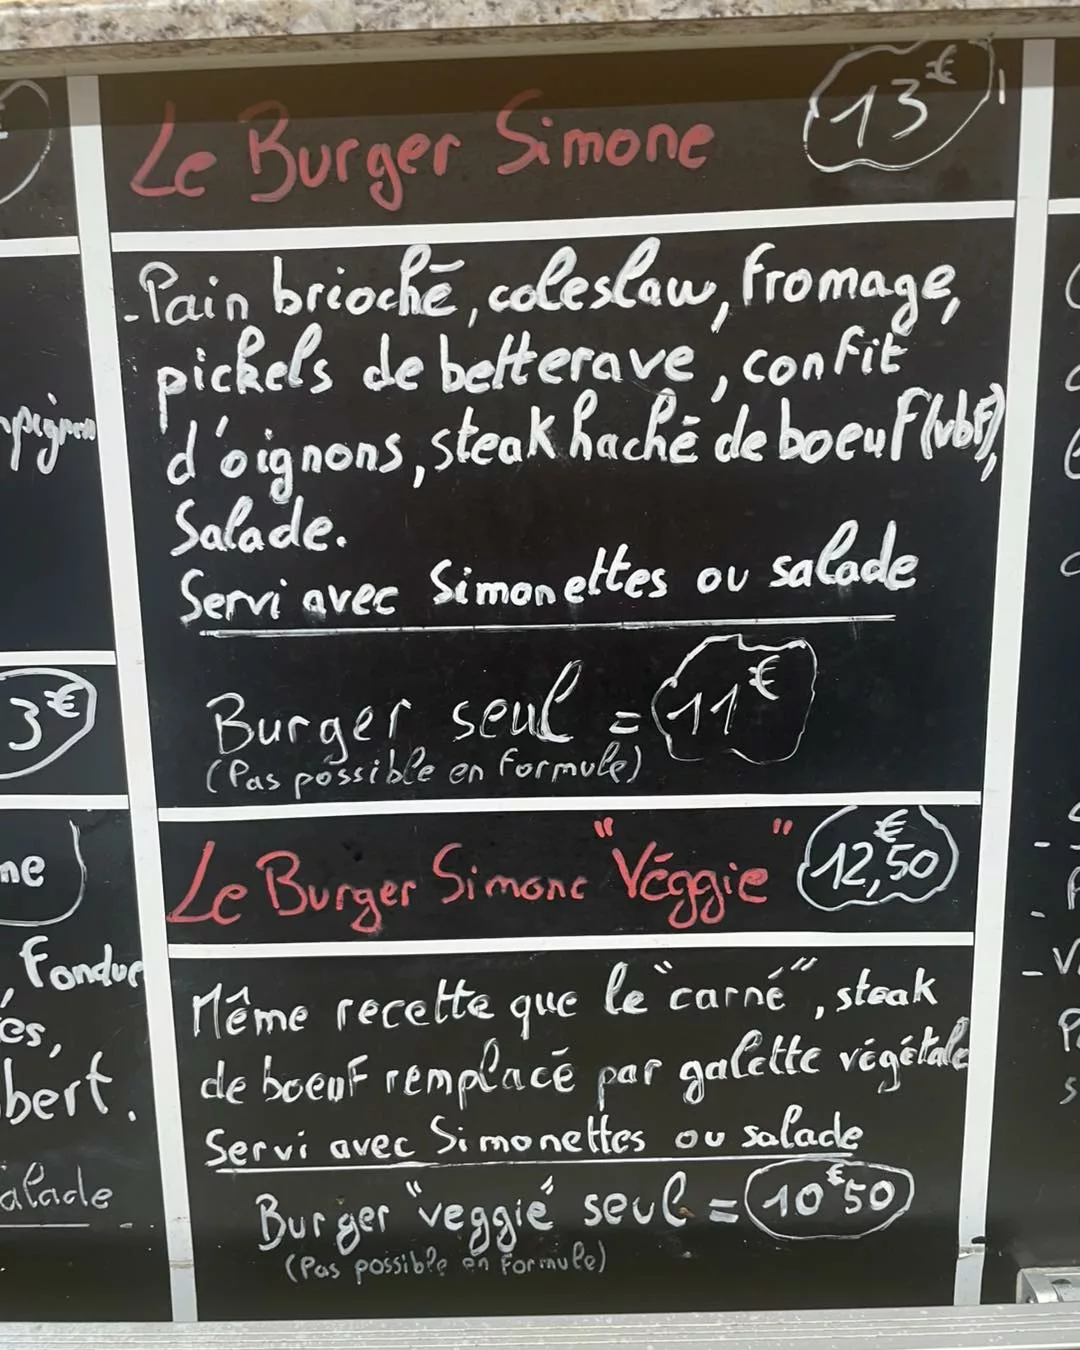 Le Burger Simone 13€
- Pain brioché, coleslaw, fromage,
pickels de betterave, confit
d'oignons, steak haché de boeuf (vbf),
Salade.
Servi avec Simonettes ou salade
Burger seul = 11€
(Pas possible en formule)
Le Burger Simone "Véggie" 12,50€
Même recette que le "carné", steak
de boeuf remplacé par galette végétale
Servi avec Simonettes ou salade
Burger "veggie" seul = 10€50
(Pas possible en formule)
3€
Fondue
bert.
alade